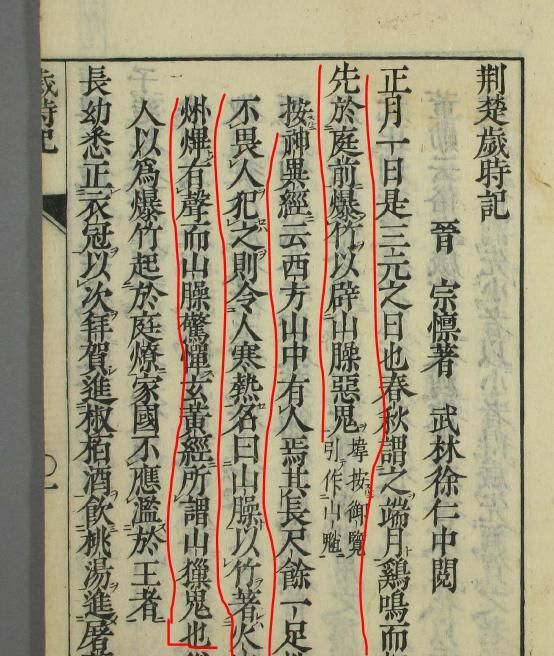 荆楚歲時記
晉　宗懍著　武林徐仁中閱
正月一日是三元之日也春秋謂之端月鷄鳴而
先於庭前爆竹以辟山臊惡鬼 㙔按御覽引作山魈
按神異經云西方山中有人焉其長尺餘一足性
不畏人犯之則令人寒熱名曰山臊以竹著火
烞熚有聲而山臊驚憚玄黃經所謂山𤢖鬼也
人以為爆竹起於庭燎家國不應濫於王者
長幼悉正衣冠以次拜賀進椒柏酒飲桃湯進屠
歲時記
一